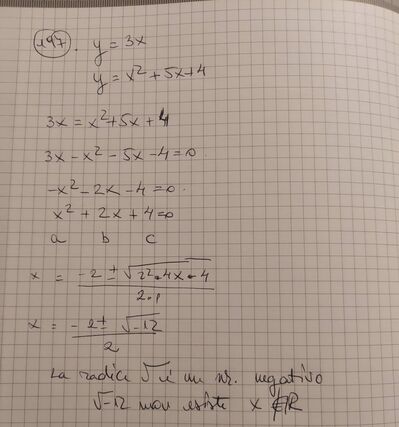 197. y = 3x
y = x² + 5x + 4
3x = x² + 5x + 4
3x - x² - 5x - 4 = 0.
-x² - 2x - 4 = 0.
x² + 2x + 4 = 0
a b c
x = (-2 ± √(2² - 4x - 4)) / 2.1
x = (-2 ± √-12) / 2
La radice √ è un nr. negativo
√-12 non esiste x ∉ R